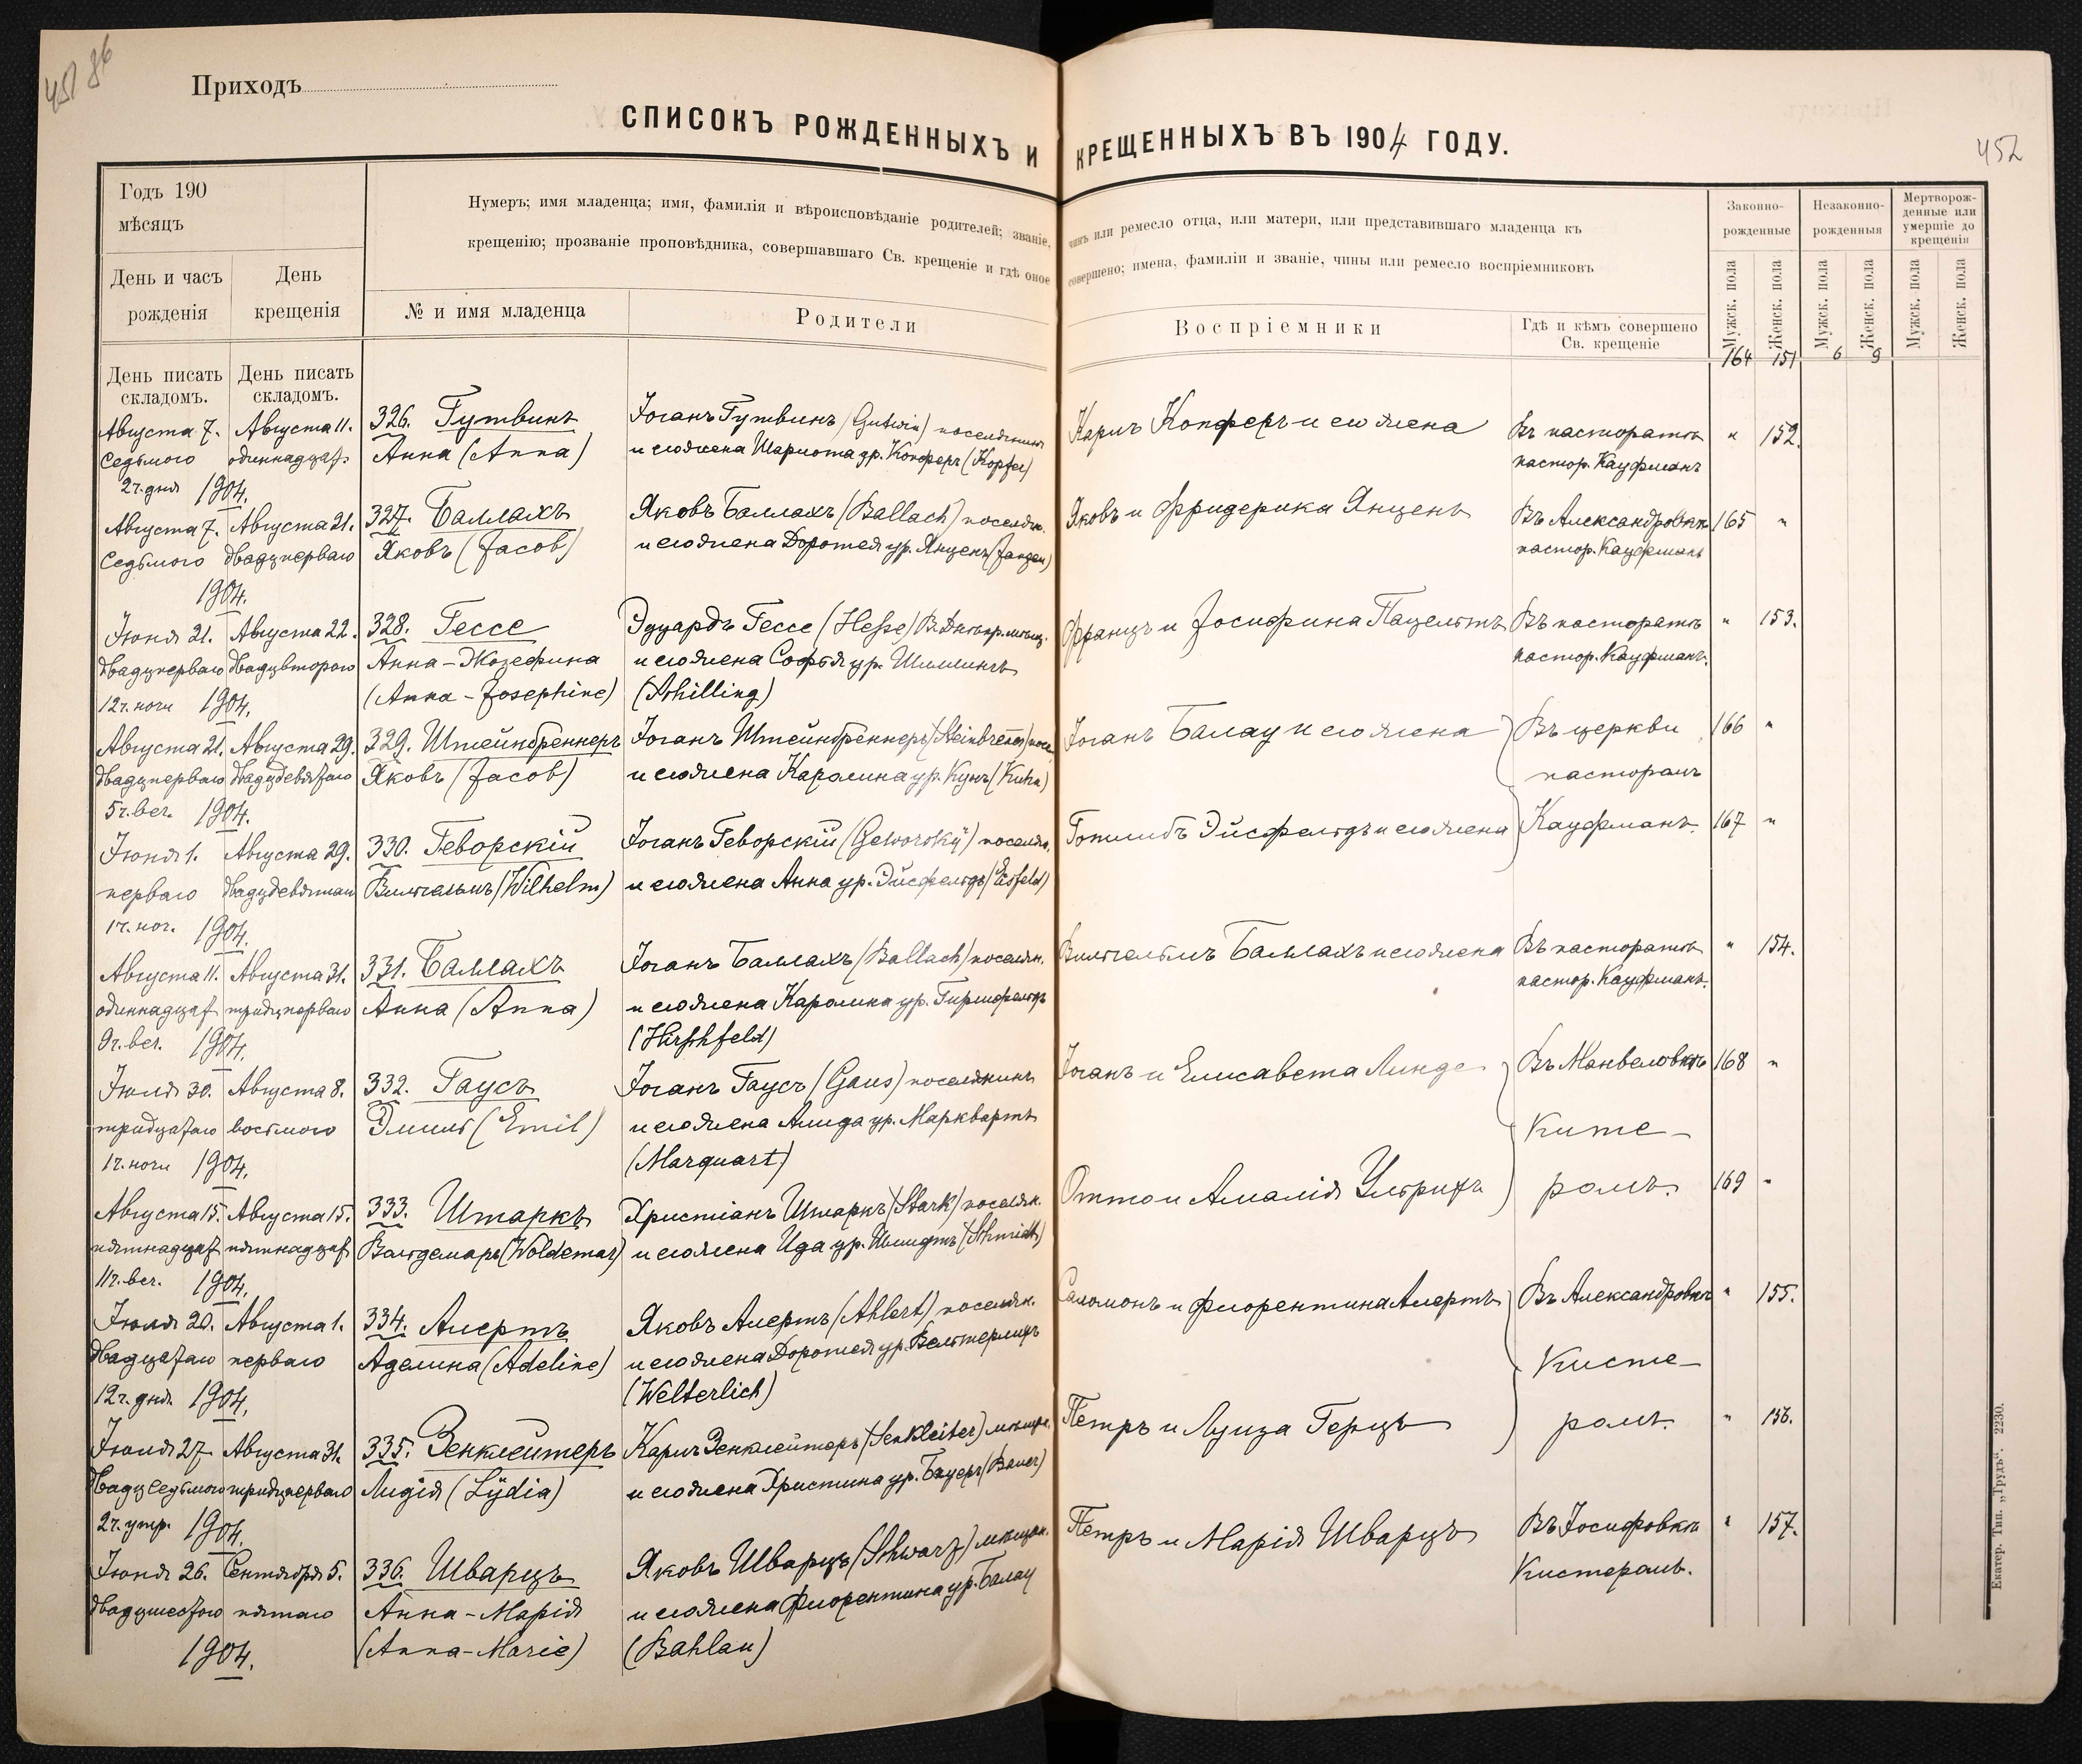 451 86
Приходъ
СПИСОКЪ РОЖДЕННЫХЪ И КРЕЩЕННЫХЪ ВЪ 1904 ГОДУ.
452
Годъ 190
мѣсяцъ
День и часъ рожденія
День крещенія
Нумеръ; имя младенца; имя, фамилія и вѣроисповѣданіе родителей; званіе, чинъ или ремесло отца, или матери, или представившаго младенца къ
крещенію; прозваніе проповѣдника, совершавшаго Св. крещеніе и гдѣ оное совершено; имена, фамиліи и званіе, чины или ремесло воспріемниковъ
№ и имя младенца
Родители
Воспріемники
Гдѣ и кѣмъ совершено
Св. крещеніе
Законно-
рожденные
Незаконно-
рожденныя
Мертворож-
денные или
умершіе до
крещенія
Мужск. пола
Женск. пола
Мужск. пола
Женск. пола
Мужск. пола
Женск. пола
164 151 6 9
День писать складомъ.
День писать складомъ.
Августа 7. Августа 11. 326. Гутвинъ Іоганъ Гутвинъ (Gutwin) поселянинъ Карлъ Копферъ и его жена Въ пасторатѣ " 152.
Седьмого одиннадцат. Анна (Anna) и его жена Шарлота ур. Копферъ (Kopfer) пастор. Кауфманъ
2 ч. дня 1904.
Августа 7. Августа 21. 327. Баллахъ Яковъ Баллахъ (Ballach) поселян. Яковъ и Фридерика Янценъ Въ Александровкѣ 165 "
Седьмого двадцперваго Яковъ (Jacob) и его жена Доротея ур. Янценъ (Janzen) пастор. Кауфманъ
1904.
Іюня 21. Августа 22. 328. Гессе Эдуардъ Гессе (Hesse) Францъ и Іосифина Пацельтъ Въ пасторатѣ " 153.
двадцперваго двадцвторого Анна-Жозефина и его жена Софья ур. Шиллингъ пастор. Кауфманъ.
12 ч. ночи 1904. (Anna-Josephine) (Schilling)
Августа 21. Августа 29. 329. Штейнбреннеръ Іоганъ Штейнбреннеръ (Steinbrenner) посел. Іоганъ Балау и его жена Въ церкви 166 "
двадцперваго двадцдевятаго Яковъ (Jacob) и его жена Каролина ур. Кунъ (Kuhn) пасторомъ
5 ч. веч. 1904.
Іюня 1. Августа 29. 330. Геворскій Іоганъ Геворскій (Geworsky) поселян. Готлибъ Эйсфельдъ и его жена Кауфманъ. 167 "
перваго двадцдевятаго Вильгельмъ (Wilhelm) и его жена Анна ур. Эйсфельдъ (Eisfeld)
1 ч. ноч. 1904.
Августа 11. Августа 31. 331. Баллахъ Іоганъ Баллахъ (Ballach) поселян. Вильгельмъ Баллахъ и его жена Въ пасторатѣ " 154.
одиннадцат тридцперваго Анна (Anna) и его жена Каролина ур. Гиршфельдъ пастор. Кауфманъ.
9 ч. веч. 1904. (Hirschfeld)
Іюля 30. Августа 8. 332. Гаусъ Іоганъ Гаусъ (Gaus) поселянинъ Іоганъ и Елисавета Линде Въ Манвеловкѣ 168 "
тридцатаго восьмого Эмиль (Emil) и его жена Алида ур. Марквартъ Кисте-
1 ч. ночи 1904. (Marquart)
Августа 15. Августа 15. 333. Штаркъ Христіанъ Штаркъ (Stark) поселян. Отто и Амалія Ульрихъ ромъ. 169 "
пятнадцат пятнадцат Вольдемаръ (Woldemar) и его жена Ида ур. Шмидтъ (Schmidt)
11 ч. веч. 1904.
Іюля 20. Августа 1. 334. Алертъ Яковъ Алертъ (Ahlert) поселян. Саломонъ и Флорентина Алертъ Въ Александровкѣ " 155.
двадцатаго перваго Аделина (Adeline) и его жена Доротея ур. Вельтерлихъ Кисте-
12 ч. дня 1904. (Welterlich)
Іюля 27 Августа 31. 335. Зенклейтеръ Карлъ Зенклейтеръ (Senkleiter) мѣщан. Петръ и Луиза Герцъ ромъ. " 156.
двадцседьмого тридцперваго Лидія (Lydia) и его жена Христина ур. Бауеръ (Bauer)
2 ч. утр. 1904.
Іюня 26. Сентября 5. 336. Шварцъ Яковъ Шварцъ (Schwarz) мѣщан. Петръ и Марія Шварцъ Въ Іосифовкѣ " 157.
двадцшестого пятаго Анна-Марія и его жена Флорентина ур. Балау Кистеромъ.
1904. (Anna-Marie) (Bahlau)
Екатер. Тип. „Трудъ". 2230.